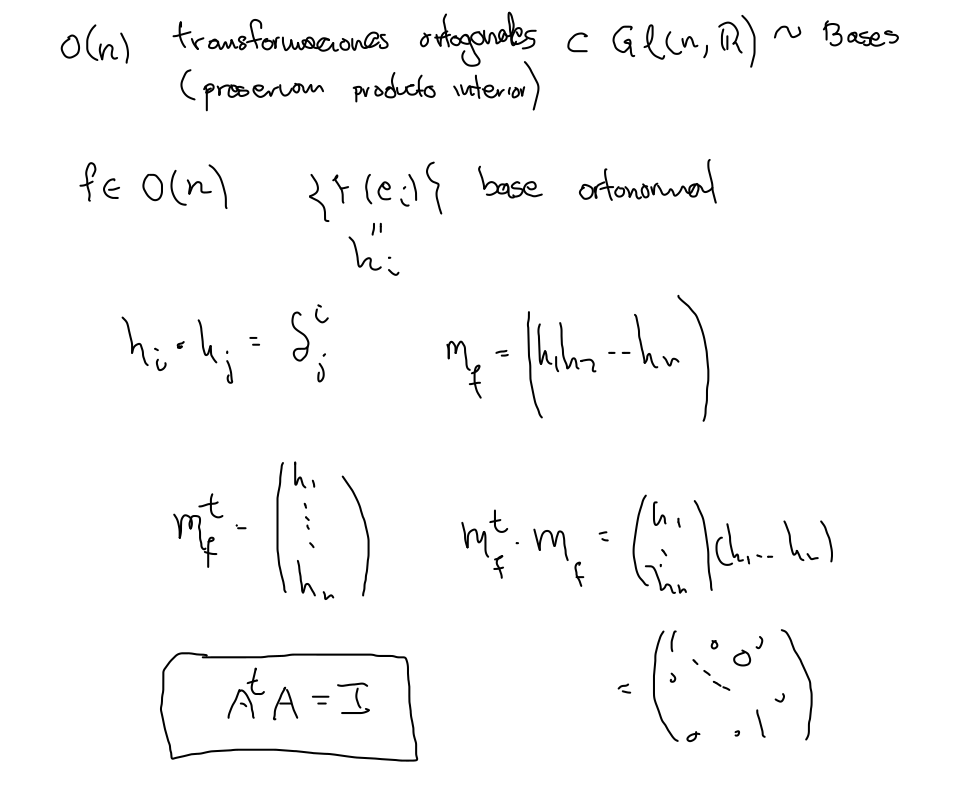 O(n) transformaciones ortogonales ⊂ Gl(n, ℝ) ~ Bases
(preservan producto interior)
f ∈ O(n) {f(e_i)} base ortonormal
"
h_i
h_i · h_j = δ^i_j m_f = (h_1 h_2 -- h_n)
m_f^t = (h_1 ⋮ h_n) m_f^t · m_f = (h_1 ⋮ h_n)(h_1 ... h_n)
= (1 0 ⋱ 0 1)
A^t A = I